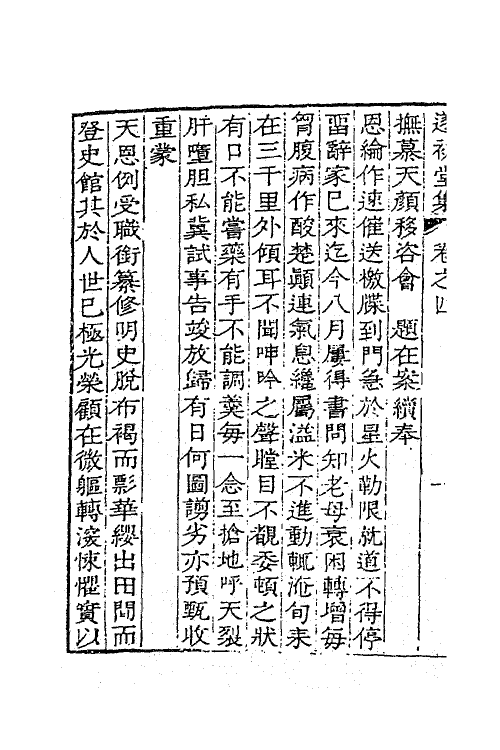 遂初堂集　卷之四
撫慕天顏移咨會　題在案續奉
恩綸作速催送檄牒到門急於星火勒限就道不得停
畱辭家已來迄今八月屢得書問知老母衰困轉增每
胷腹病作酸楚顚連氣息纔屬溢米不進動輒淹旬來
在三千里外傾耳不聞呻吟之聲瞠目不覩委頓之狀
有口不能嘗藥有手不能調羹每一念至搶地呼天裂
肝墮胆私冀試事告竣放歸有日何圖謭劣亦預甄收
重蒙
天恩例受職銜纂修明史脫布褐而影華纓出田間而
登史館其於人世已極光榮顧在微軀轉滋悚懼實以